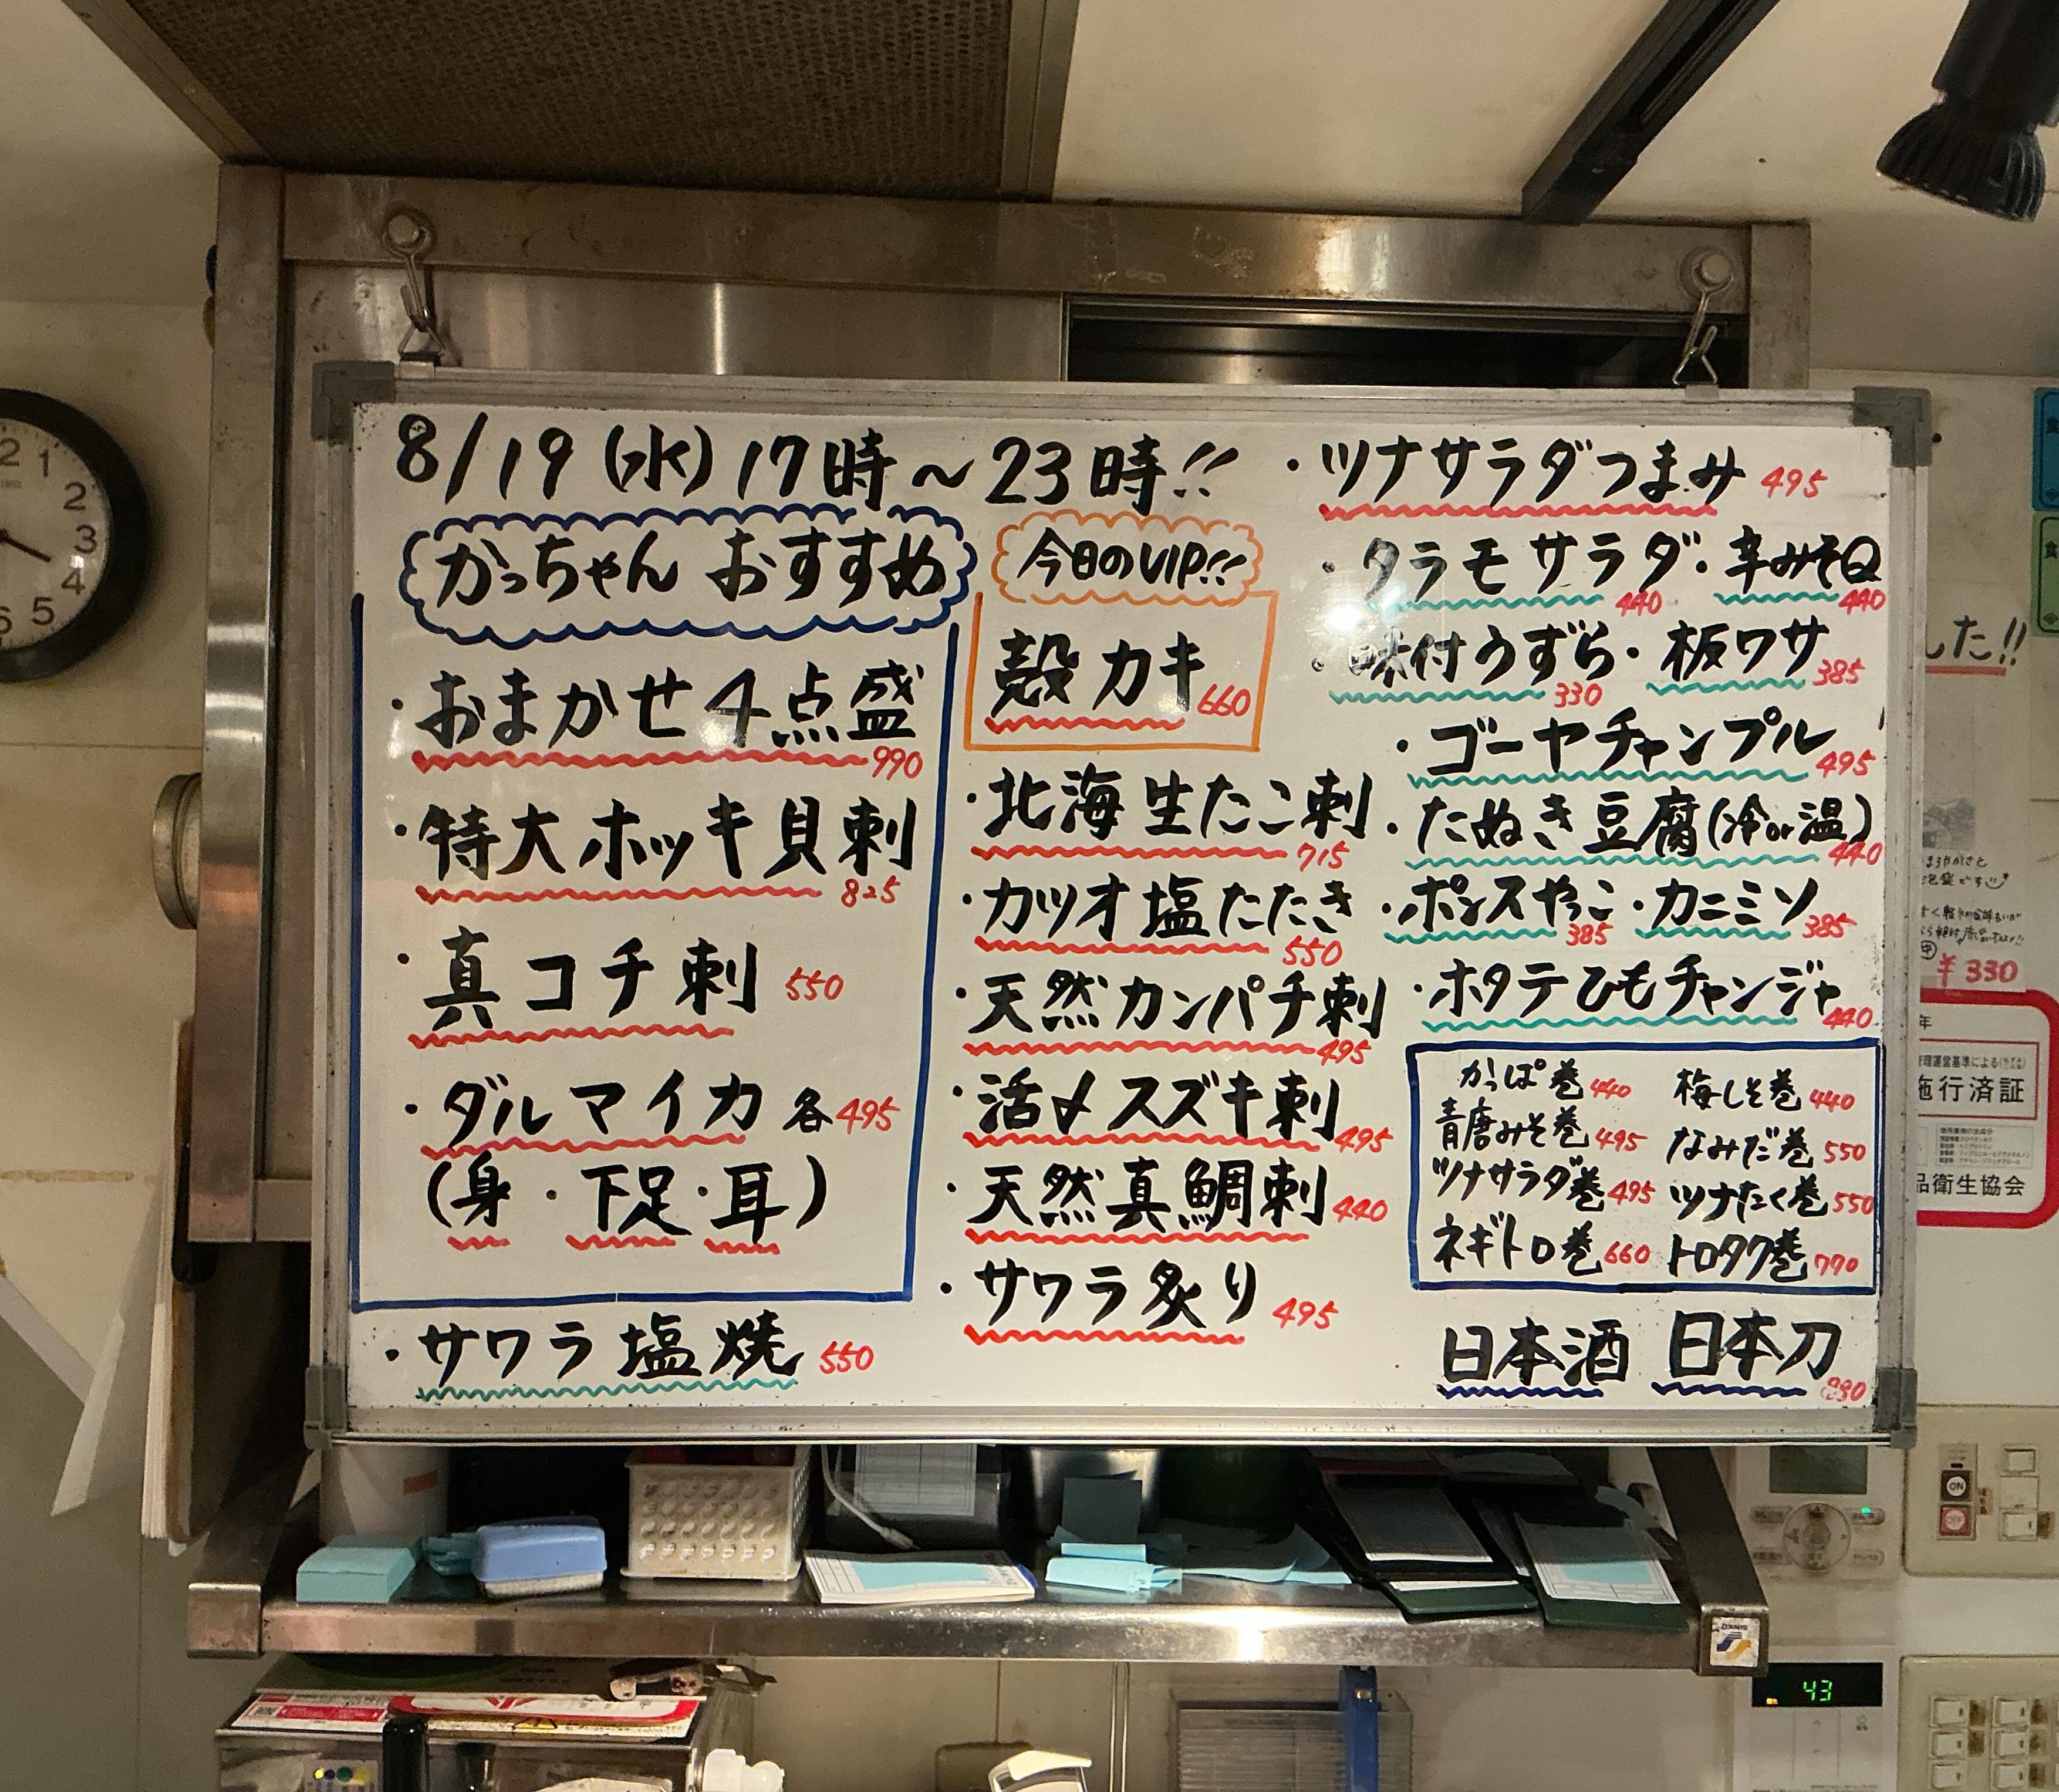 8/19 (水) 17時～23時!!
かっちゃん おすすめ
・おまかせ4点盛
990
・特大ホッキ貝刺
825
・真コチ刺 550
・ダルマイカ 各495
(身・下足・耳)
・サワラ塩焼 550
今日のVIP!!
殻カキ 660
・北海生たこ刺
715
・カツオ塩たたき
550
・天然カンパチ刺
495
・活〆スズキ刺 495
・天然真鯛刺 440
・サワラ炙り 495
・ツナサラダつまみ 495
・タラモサラダ・辛みそQ
440 440
・味付うずら・板ワサ
330 385
・ゴーヤチャンプル 495
・たぬき豆腐(冷or温)
440
・ポンスやっこ・カニミソ
385 385
・ホタテひもチャンジャ
440
かっぱ巻 440 梅しそ巻 440
青唐みそ巻 495 なみだ巻 550
ツナサラダ巻 495 ツナたく巻 550
ネギトロ巻 660 トロタク巻 770
日本酒 日本刀
した!!
¥330
施行済証
品衛生協会
1
2
3
4
5
6
ON
43